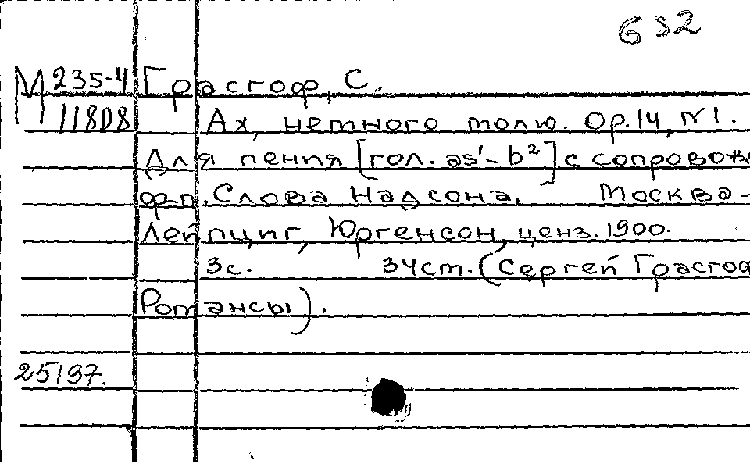 632
М 235-4 Грасгоф, С.
11808 Ах, немного молю. Ор.14, №1.
Для пения [гол. as'-b²] с сопровож
ф-п. Слова Надсона. Москва-
Лейпциг, Юргенсон, ценз. 1900.
3с. 34см. (Сергей Грасгоф
Романсы).
25197.